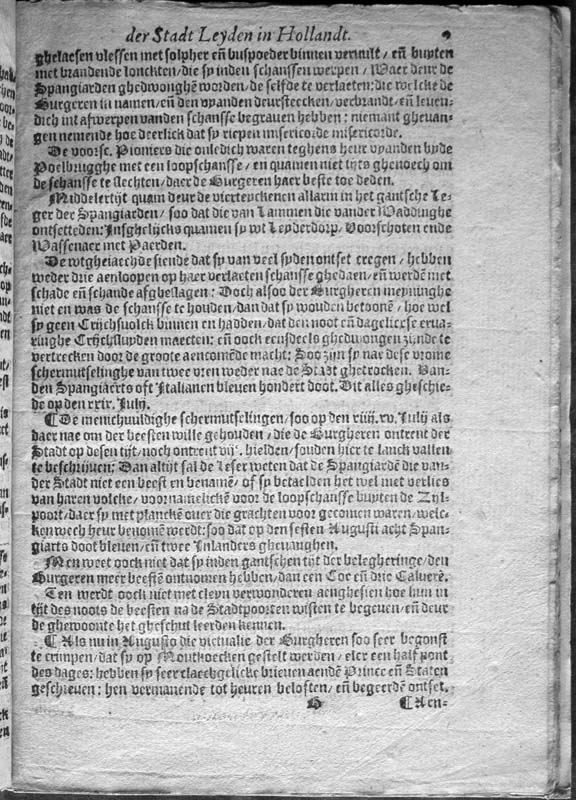 der Stadt Leyden in Hollandt. 9
ghelaesen vlessen met solpher eñ buspoeder binnen vervult / eñ buyten
met brandende lonckten / die sy inden schanssen werpen / Waer deur de
Spangiarden ghedwonghē worden / de selfde te verlaeten: die welcke de
Burgeren in namen / eñ den vyanden deursteecken / verbrandt / eñ leuen-
dich int afwerpen vanden schansse begrauen hebben: niemant gheuan-
gen nemende hoe deerlick dat sy riepen misericorde misericorde.
De voorsc. Pioniers die onledich waren teghens heur vyanden byde
Poelbrugghe met een loopschansse / en quamen niet tijts ghenoech om
de schansse te slechten / daer de Burgeren haer beste toe deden.
Middelertijt quam deur de vierteyckenen allarm in het gantsche Le-
ger der Spangiarden / soo dat die van Lammen die vander Waddinghe
ontsetteden: Insghelijcks quamen sy wt Leyderdorp / Voorschoten ende
Wassenaer met Paerden.
De wtgheiaechde siende dat sy van veel syden ontset cregen / hebben
weder drie aenloopen op haer verlaeten schansse ghedaen / eñ werdē met
schade eñ schande afgeslagen: Doch alsoo der Burgheren meyninghe
niet en was de schansse te houden / dan dat sy wouden betoonē / hoe wel
sy geen Crijchsuolck binnen en hadden / dat den noot eñ dagelicxse erua-
ringhe Crijchsluyden maecten: eñ oock eensdeels ghedwongen zijnde te
vertrecken door de groote aencomēde macht: Soo zijn sy nae dese vrome
schermutselinghe van twee vren weder nae de Stadt ghetrocken. Van-
den Spangiaerts oft Italianen bleuen hondert doot. Dit alles gheschie-
de op den xxix. Julij.
¶ De menichuuldighe schermutselingen / soo op den xiiij. xv. Julij als
daer nae om der beesten wille gehouden / die de Burgheren ontrent der
Stadt op desen tijt / noch ontrent vijc. hielden / souden hier te lanck vallen
te beschrijuen: Dan altijt sal de Leser weten dat de Spangiardē die van-
der Stadt niet een beest en benamē / of sy betaelden het wel met verlies
van haren volcke / voornamelickē voor de loopschansse buyten de Zijl-
poort / daer sy met planckē ouer die grachten voor gecomen waren / welc-
ken wech heur benomē werdt: soo dat op den sesten Augusti acht Span-
giarts doot bleuen / eñ twee Inlanders gheuanghen.
Men weet oock niet dat sy inden gantschen tijt der belegheringe / den
Burgeren meer beestē ontnomen hebben / dan een Coe eñ drie Calverē.
Ten werdt oock niet met cleyn verwonderen aenghesien hoe hun in
tijt des noots de beesten na de Stadtpoorten wisten te begeuen / eñ deur
de ghewoonte het gheschut leerden kennen.
¶ Als nu in Augusto die victualie der Burgheren soo seer begonst
te crimpen / dat sy op Moutkoecken gestelt werden / elcr een half pont
des dages: hebben sy seer claechgelicke brieuen aendē Prince eñ Staten
geschreuen: hen vermanende tot heuren beloften / eñ begeerdē ontset.
¶ Aen-